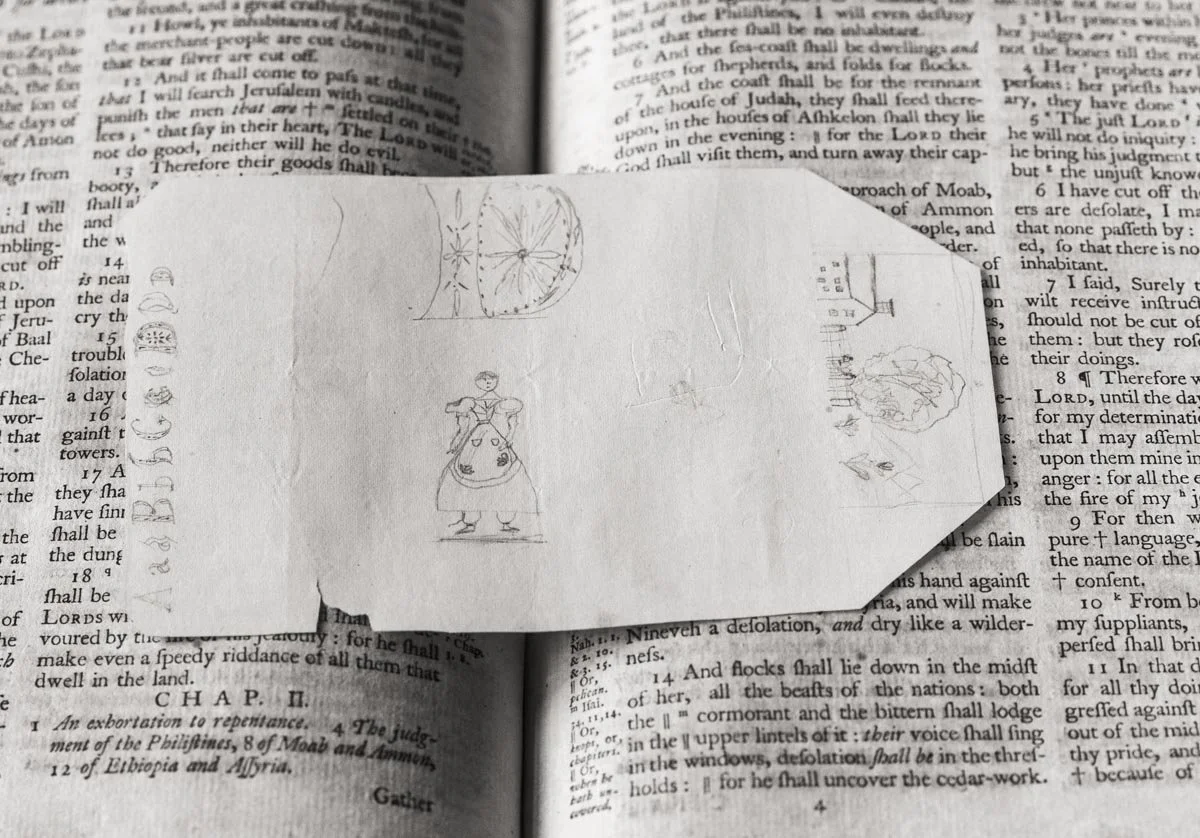 the Lord
Cuſhi, the
the ſon of
the days of
of Amon
from
: I will
and the
mbling-
cut off
RD.
upon
Jeru-
of Baal
Che-
wor-
that
from
the
the
s at
of
the
the ſecond, and a great craſhing from the
11 Howl, ye inhabitants of Makteſh, for all
the merchant-people are cut down: all they
that bear ſilver are cut off.
12 And it ſhall come to paſs at that time,
that I will ſearch Jeruſalem with candles, and
puniſh the men that are † ᵐ ſettled on their
lees, ⁿ that ſay in their heart, The LORD will
not do good, neither will he do evil.
13 Therefore their goods ſhall
booty,
ſhall
and
the
14
is near
the da
cry th
15
trouble
ſolation
a day
16
gainſt t
towers.
17 A
they ſha
have ſinn
ſhall be
the dung
18 q
ſhall be
LORDS
voured by the jealouſy : for he ſhall
make even a ſpeedy riddance of all them that
dwell in the land.
CHAP. II.
1 An exhortation to repentance. 4 The judg-
ment of the Philiſtines, 8 of Moab and Ammon,
12 of Ethiopia and Aſſyria.
Gather
A a a B b b C c c D D D D
land of the Philiſtines, I will even deſtroy
thee, that there ſhall be no inhabitant.
6 And the ſea-coaſt ſhall be dwellings and
cottages for ſhepherds, and folds for flocks.
7 And the coaſt ſhall be for the remnant
of the houſe of Judah, they ſhall feed there-
upon, in the houſes of Aſhkelon ſhall they lie
down in the evening : ‖ for the LORD their
God ſhall viſit them, and turn away their cap-
proach of Moab,
of Ammon
people, and
order.
of
all
on
be ſlain
his hand againſt
and will make
Nineveh a deſolation, and dry like a wilder-
neſs.
14 And flocks ſhall lie down in the midſt
of her, all the beaſts of the nations : both
the ‖ ᵐ cormorant and the bittern ſhall lodge
in the ‖ upper lintels of it : their voice ſhall ſing
in the windows, deſolation ſhall be in the threſ-
holds : ‖ for he ſhall uncover the cedar-work.
4
Chap.
1. 2.
Nah. 1. 1.
& 2. 10.
& 3. 15.
‖ Or,
pelican.
‖ Or,
‖ Or,
covered.
3 Her princes within
her judges are evening
not the bones till the mo
4 Her prophets are
perſons : her prieſts have
ary, they have done
5 The juſt LORD
he will not do iniquity :
he bring his judgment t
but ᵏ the unjuſt know
6 I have cut off the
ers are deſolate, I m
that none paſſeth by :
ed, ſo that there is no
inhabitant.
7 I ſaid, Surely t
wilt receive inſtruct
ſhould not be cut of
them : but they roſe
their doings.
8 ¶ Therefore w
LORD, until the day
for my determinatio
that I may aſſemb
upon them mine in
anger : for all the e
the fire of my ʰ j
9 For then w
pure † language,
the name of the
† conſent.
10 ᵏ From be
my ſuppliants,
perſed ſhall brin
11 In that d
for all thy doin
greſſed againſt
out of the mid
thy pride, and
† becauſe of